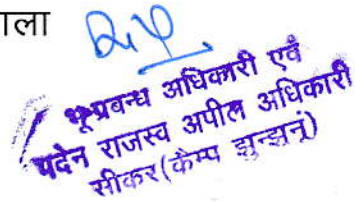 ाला
भू-प्रबन्ध अधिकारी एवं
पदेन राजस्व अपील अधिकारी
सीकर (कैम्प झुन्झनूं)